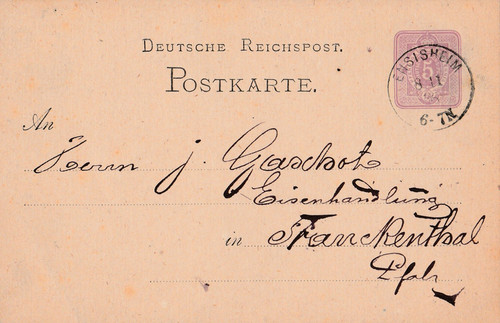 DEUTSCHE REICHSPOST.
POSTKARTE.
ENSISHEIM
8 11
6-7N
5
An
Herrn J. Gaschot
Eisenhandlung
in Franckenthal
Pfalz